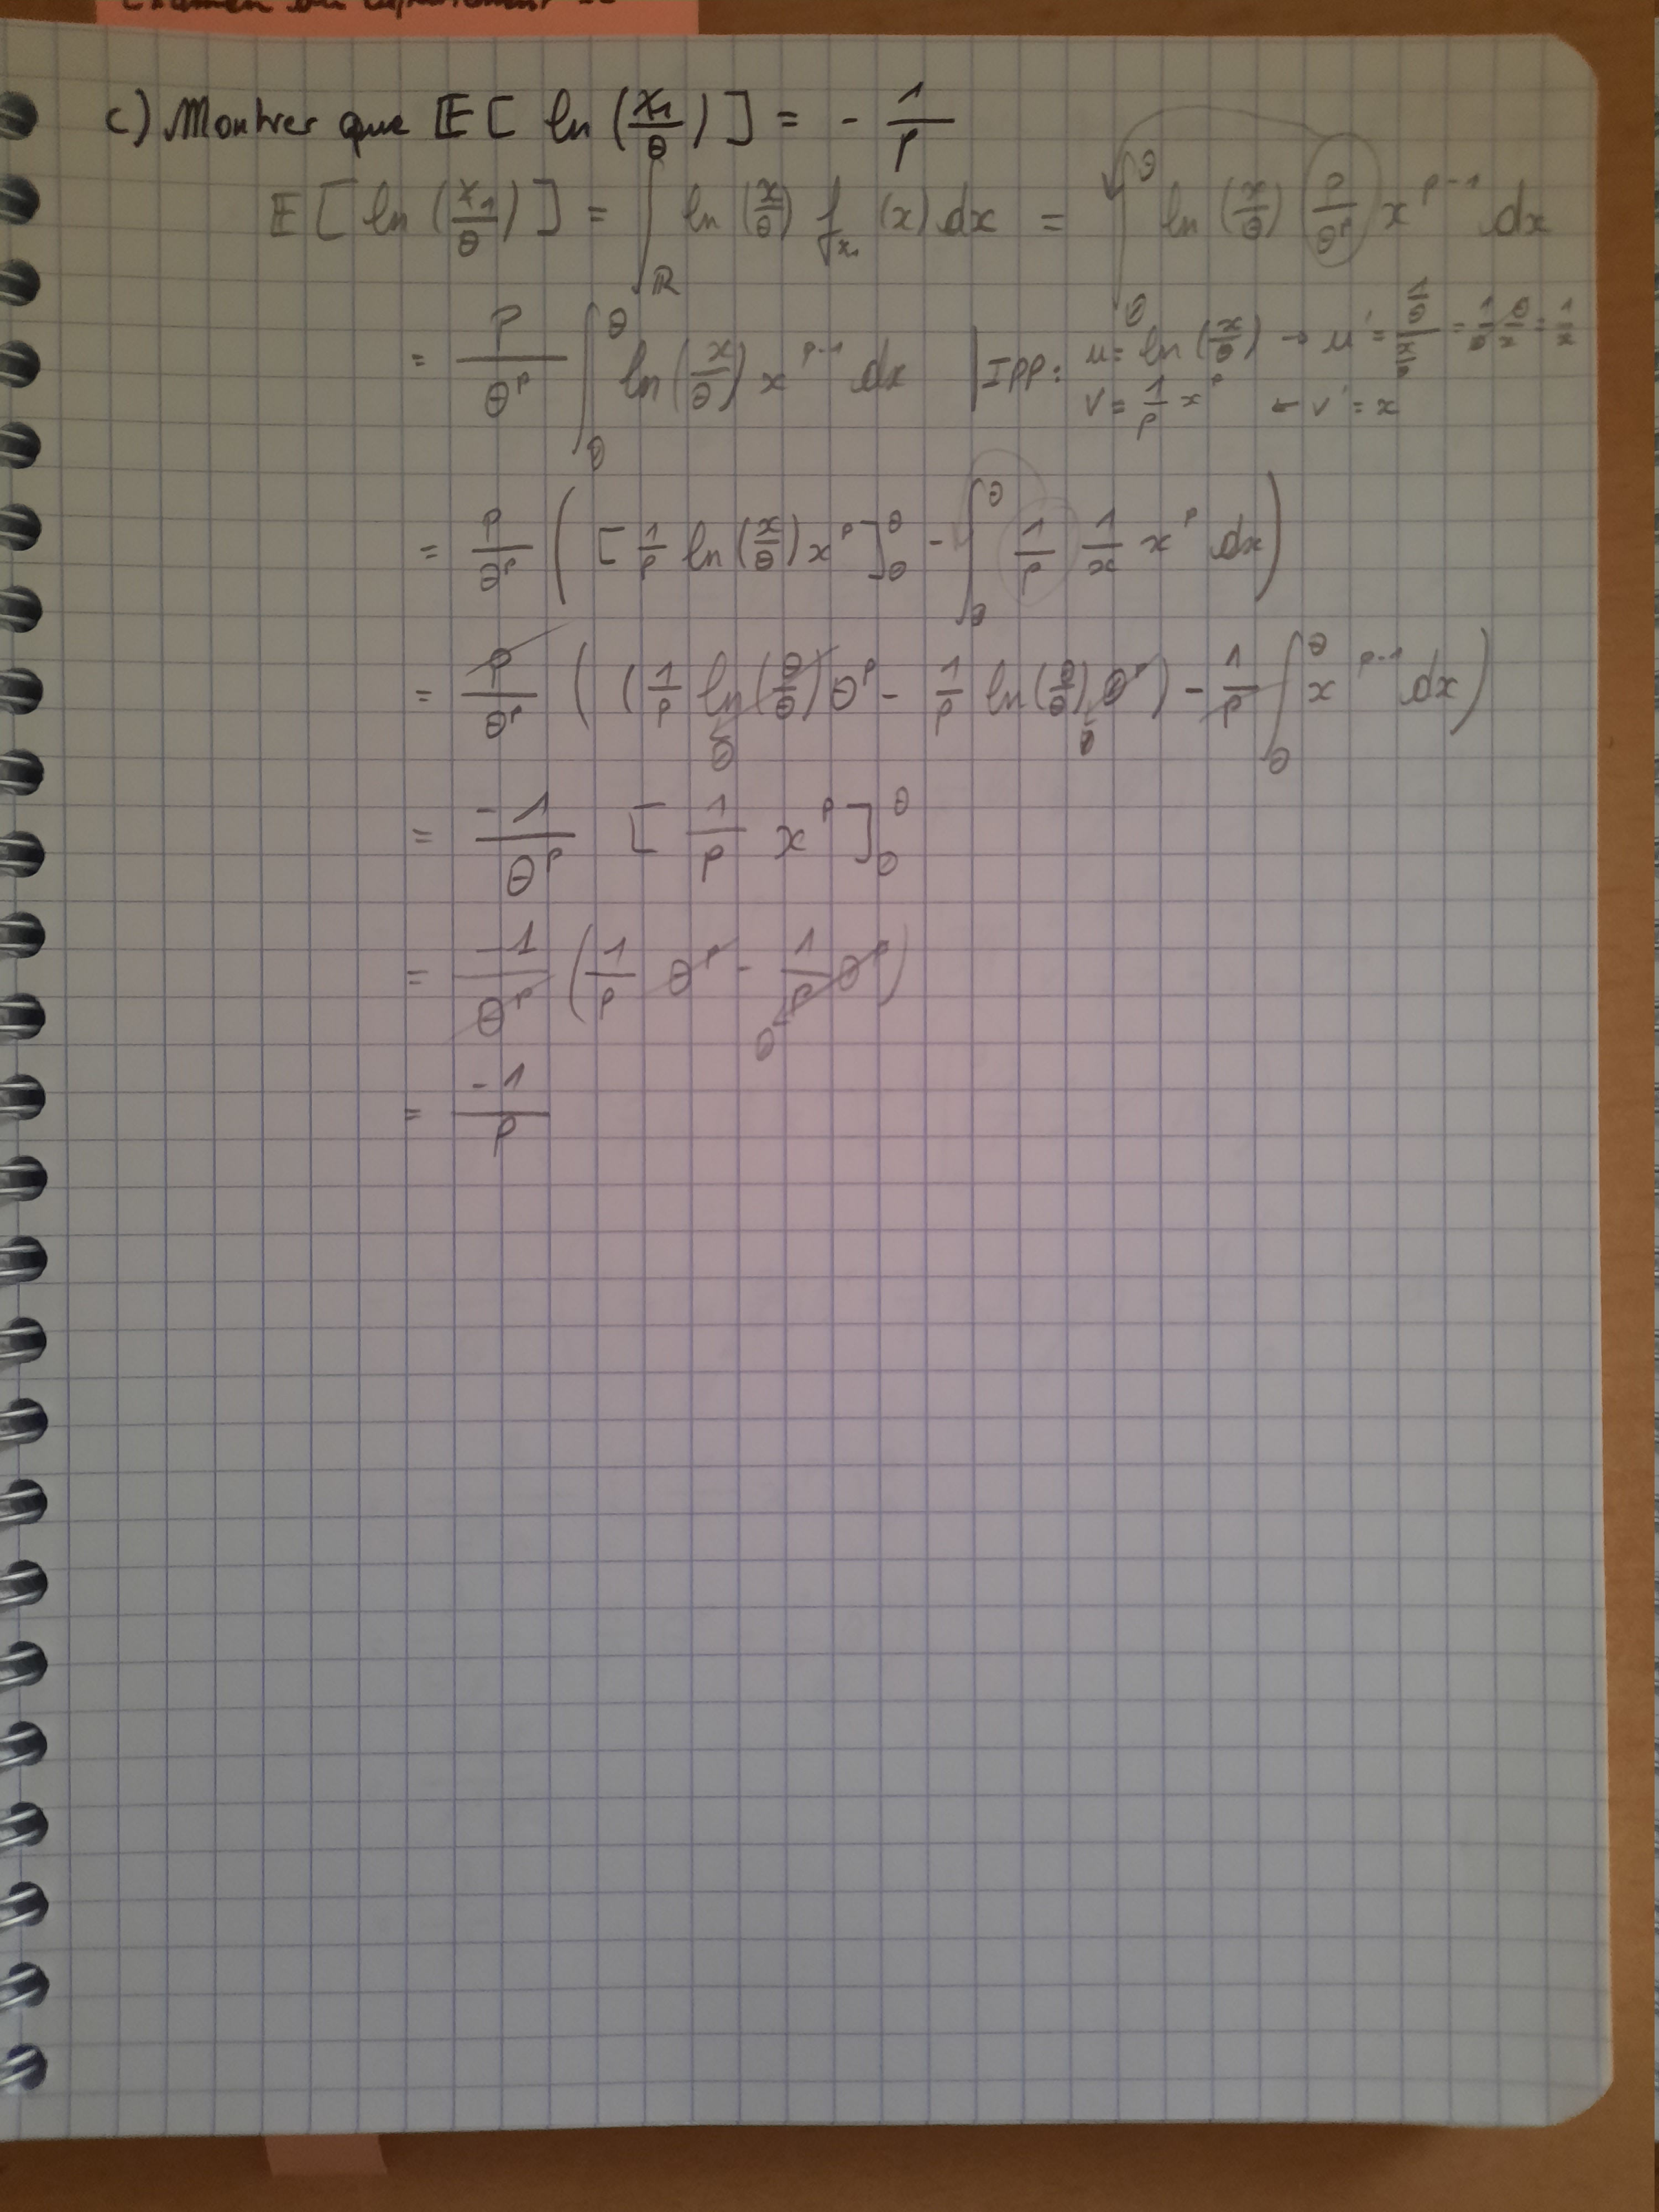 Examen du
c) Montrer que 𝔼[ ln(X₁/θ) ] = - 1/p
𝔼[ ln(X₁/θ) ] = ∫_ℝ ln(x/θ) f_{X₁}(x) dx = ∫_0^θ ln(x/θ) p/θ^p x^{p-1} dx
= p/θ^p ∫_0^θ ln(x/θ) x^{p-1} dx | IPP: u = ln(x/θ) → u' = (1/θ)/(x/θ) = 1/θ θ/x = 1/x
v = 1/p x^p ← v' = x
= p/θ^p ( [ 1/p ln(x/θ) x^p ]_0^θ - ∫_0^θ 1/p 1/x x^p dx )
= p/θ^p ( ( 1/p ln(θ/θ) θ^p - 1/p ln(0/θ) 0^p ) - 1/p ∫_0^θ x^{p-1} dx )
0 0
= -1/θ^p [ 1/p x^p ]_0^θ
= -1/θ^p ( 1/p θ^p - 1/p 0^p )
0
= -1/p